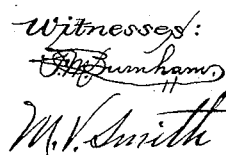 Witnesses:
J.M. Burnham.
M. V. Smith